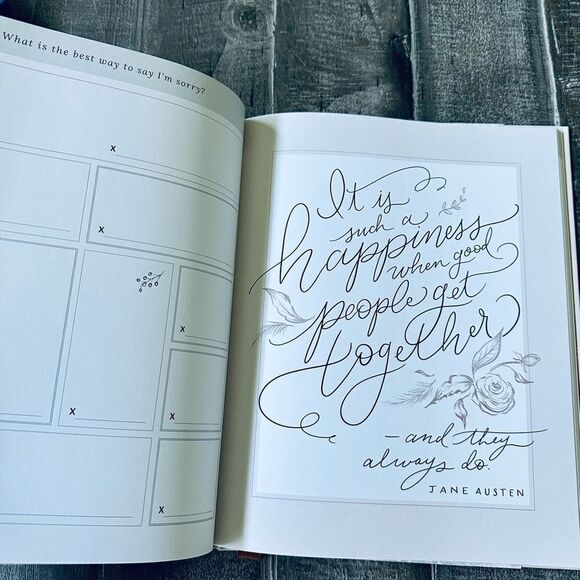 What is the best way to say I'm sorry?
x
x
x
x
x
x
It is
such a
happiness
when good
people get
together
—and they
always do.
JANE AUSTEN